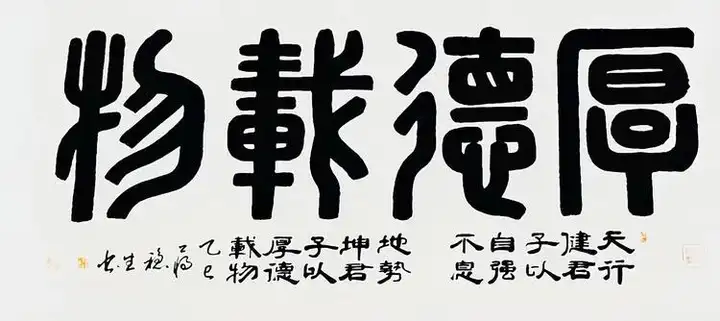 厚德載物
天行
健君
子以
自强
不息
地勢
坤君
子以
厚德
載物
乙巳
生书